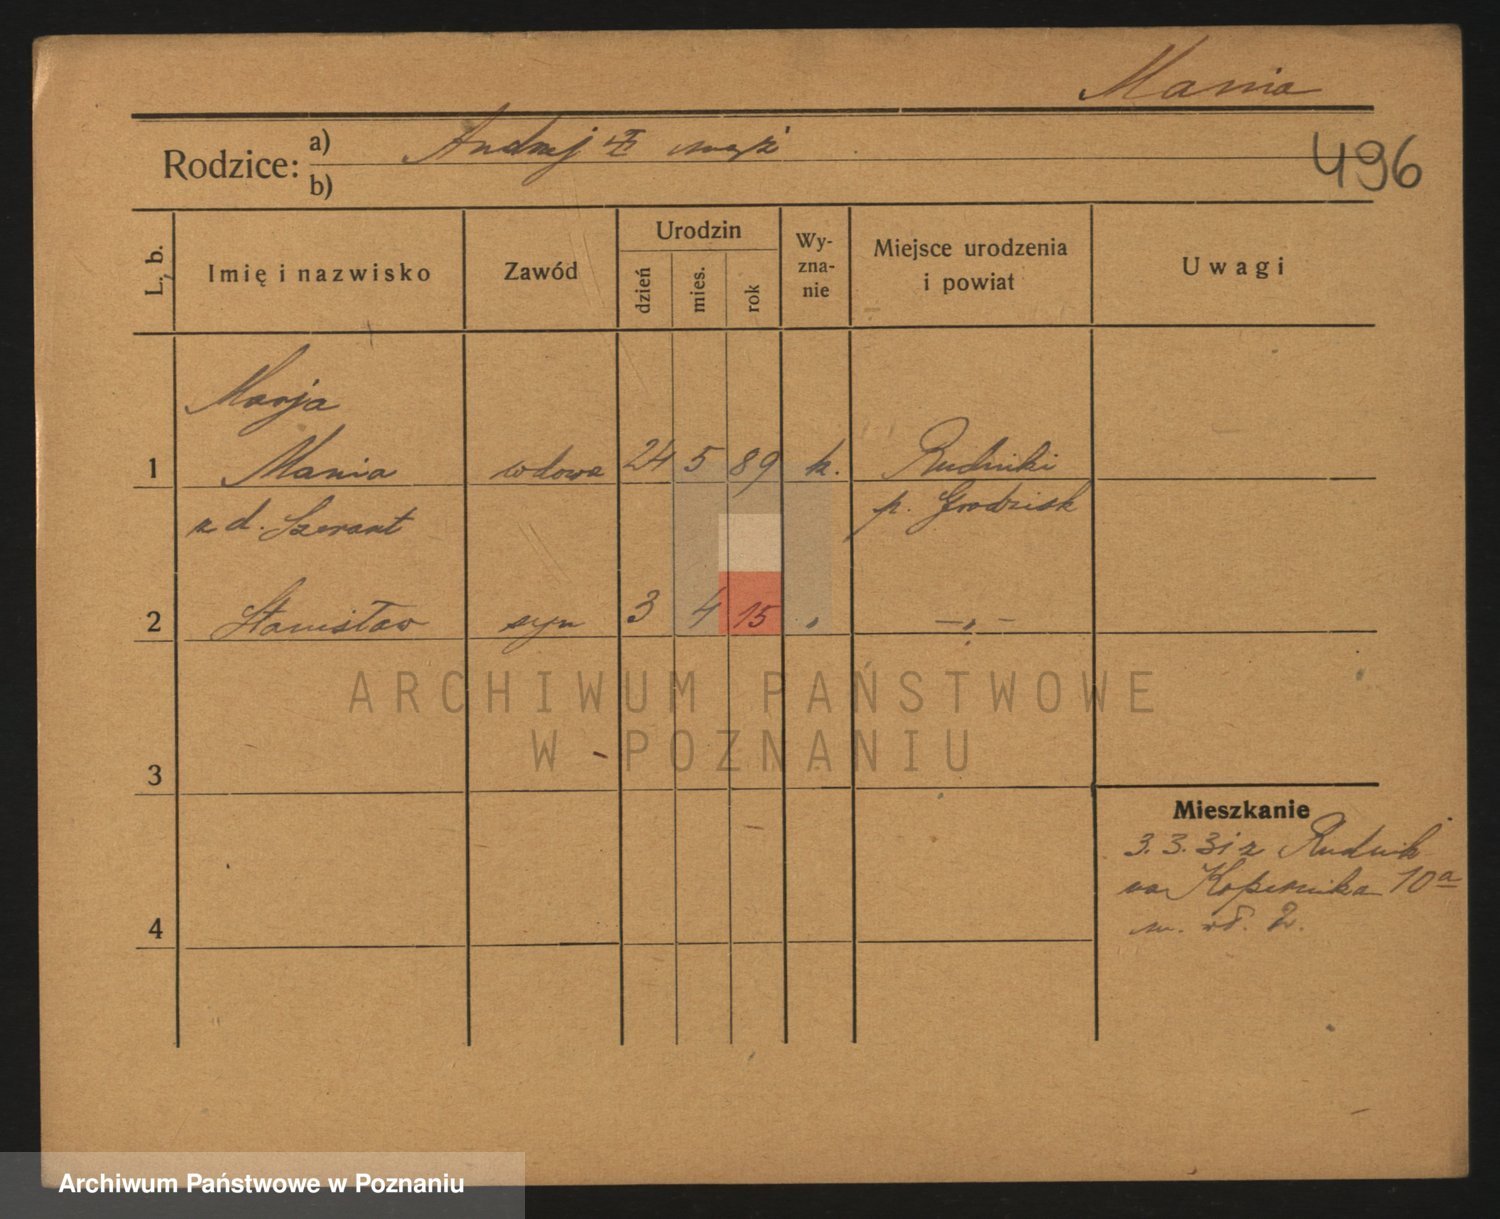 Mania
Rodzice: a) Andrzej mąż
b)
496
L. b. Imię i nazwisko Zawód Urodzin dzień mies. rok Wy-zna-nie Miejsce urodzenia i powiat Uwagi
Marja
1 Mania wdowa 24 5 89 k. Rudniki
z d. Szerant p. Grodzisk
2 Stanisław syn 3 4 15 „ – „ –
ARCHIWUM PAŃSTWOWE
W POZNANIU
3
Mieszkanie
3. 3. 31 z Rudnik
na Kopernika 10a
4 m. 2.
Archiwum Państwowe w Poznaniu